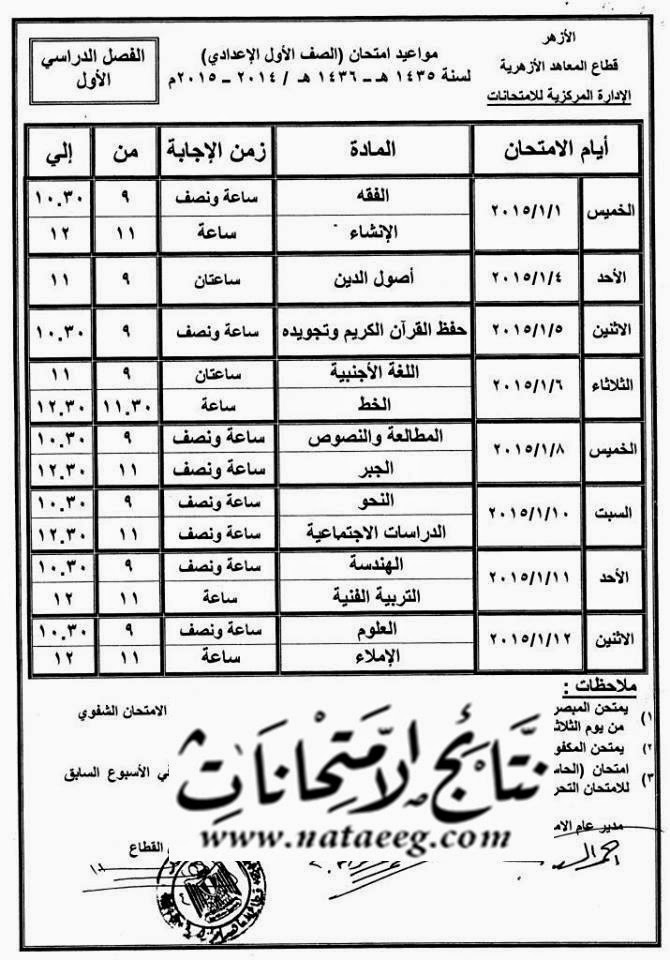 الأزهر
قطاع المعاهد الأزهرية
الإدارة المركزية للامتحانات
مواعيد امتحان (الصف الأول الإعدادي)
لسنة ١٤٣٥ هـ – ١٤٣٦ هـ / ٢٠١٤ – ٢٠١٥م
الفصل الدراسي
الأول
أيام الامتحان المادة زمن الإجابة من إلي
الخميس ٢٠١٥/١/١ الفقه ساعة ونصف ٩ ١٠.٣٠
الإنشاء ساعة ١١ ١٢
الأحد ٢٠١٥/١/٤ أصول الدين ساعتان ٩ ١١
الاثنين ٢٠١٥/١/٥ حفظ القرآن الكريم وتجويده ساعة ونصف ٩ ١٠.٣٠
الثلاثاء ٢٠١٥/١/٦ اللغة الأجنبية ساعتان ٩ ١١
الخط ساعة ١١.٣٠ ١٢.٣٠
الخميس ٢٠١٥/١/٨ المطالعة والنصوص ساعة ونصف ٩ ١٠.٣٠
الجبر ساعة ونصف ١١ ١٢.٣٠
السبت ٢٠١٥/١/١٠ النحو ساعة ونصف ٩ ١٠.٣٠
الدراسات الاجتماعية ساعة ونصف ١١ ١٢.٣٠
الأحد ٢٠١٥/١/١١ الهندسة ساعة ونصف ٩ ١٠.٣٠
التربية الفنية ساعة ١١ ١٢
الاثنين ٢٠١٥/١/١٢ العلوم ساعة ونصف ٩ ١٠.٣٠
الإملاء ساعة ١١ ١٢
ملاحظات :
١) يمتحن الامتحان الشفوي
من يوم
٢) يمتحن
٣) امتحان في الأسبوع السابق
للامتحان
نتائج الامتحانات
www.nataeeg.com
مدير عام القطاع